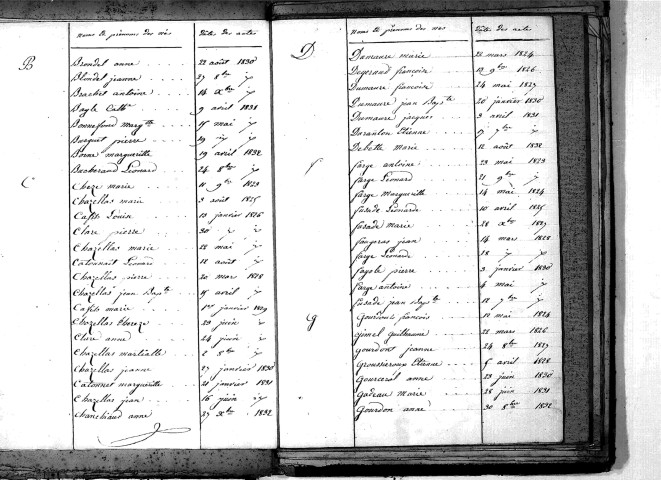 noms et prénoms des nés dates des actes
B
Brondel anne 22 août 1830
Blondel jeanne 27 8bre id
Brachet antoine 14 xbre id
Bayle Cathe 9 avril 1831
Bonnefond margtte 15 mai id
Borquet pierre 19 id id
Borne margueritte 19 avril 1832
Bacheraud Léonard 24 8bre id
C
Cheze marie 11 9bre 1823
Chazellas marie 3 août 1825
Cafits Louise 13 janvier 1826
Clare pierre 30 id id
Chazellas marie 28 mai id
Catonnait Léonard 12 août id
Chazellas pierre 20 mar 1828
Chazellas jean Baptte 15 avril id
Cafits marie 1er janvier 1829
Chazellas thereze 23 juin id
Clare anne 24 juin id
Chazellas martialle 2 8bre id
Chazellas jeanne 27 janvier 1830
Catonnet margueritte 20 janvier 1831
Chazellas jean 16 juin id
Chanchaud anne 27 xbre 1832
noms et prénoms des nés dates des actes
D
Dumaure marie 26 mars 1824
Degeraud françois 12 9bre 1826
Dumaure françoise 24 mai 1827
Dumaure jean Baptte 20 janvier 1830
Dumaure jacques 3 avril 1831
Duranton Etienne 17 7bre id
Debette marie 12 août 1832
f
farge antoine 23 mai 1823
farge Léonard 21 9bre id
farge Margueritte 14 mai 1824
fusade Léonarde 10 avril 1825
fusade marie 28 xbre 1827
faugeras jean 14 mar 1828
farge Léonard 18 id id
fayole pierre 3 janvier 1830
farge antoine 4 mai id
fusade jean Baptte 12 7bre id
G
Gourdont françois 12 mai 1824
gimel guilhaume 22 mars 1826
gourdont jeanne 24 8bre 1827
Groussieroux Etienne 5 avril 1828
Gourcerol anne 23 juin 1830
Gadeau marie 28 juin 1831
Gourdon anne 30 8bre 1832